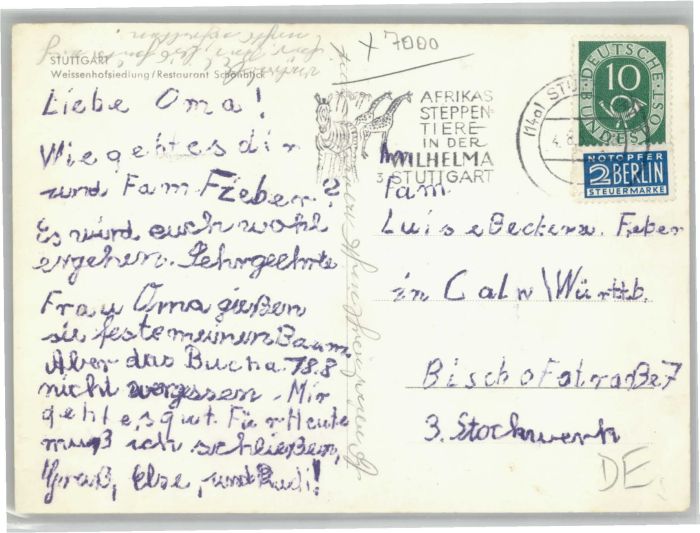 STUTTGART
Weissenhofsiedlung/Restaurant Schönblick
x 7000
Liebe Oma!
Wie geht es dir
und Fam Fieber?
Es wird euch wohl
ergehen. Sehrgeehrte
Frau Oma gießen
sie feste meinen Baum.
Aber das Buch a. 78.8
nicht vergessen. Mir
geht es gut. Für Heute
muß ich schließen,
Gruß, Else, und Rudi!
AFRIKAS
STEPPEN-
TIERE
IN DER
WILHELMA
STUTTGART
DEUTSCHE BUNDESPOST
10
NOTOPFER
2 BERLIN
STEUERMARKE
An
Fam.
Luise Beckera. Fieber
in Calw/Württb.
Bischofstraße 7
3. Stockwerk
DE